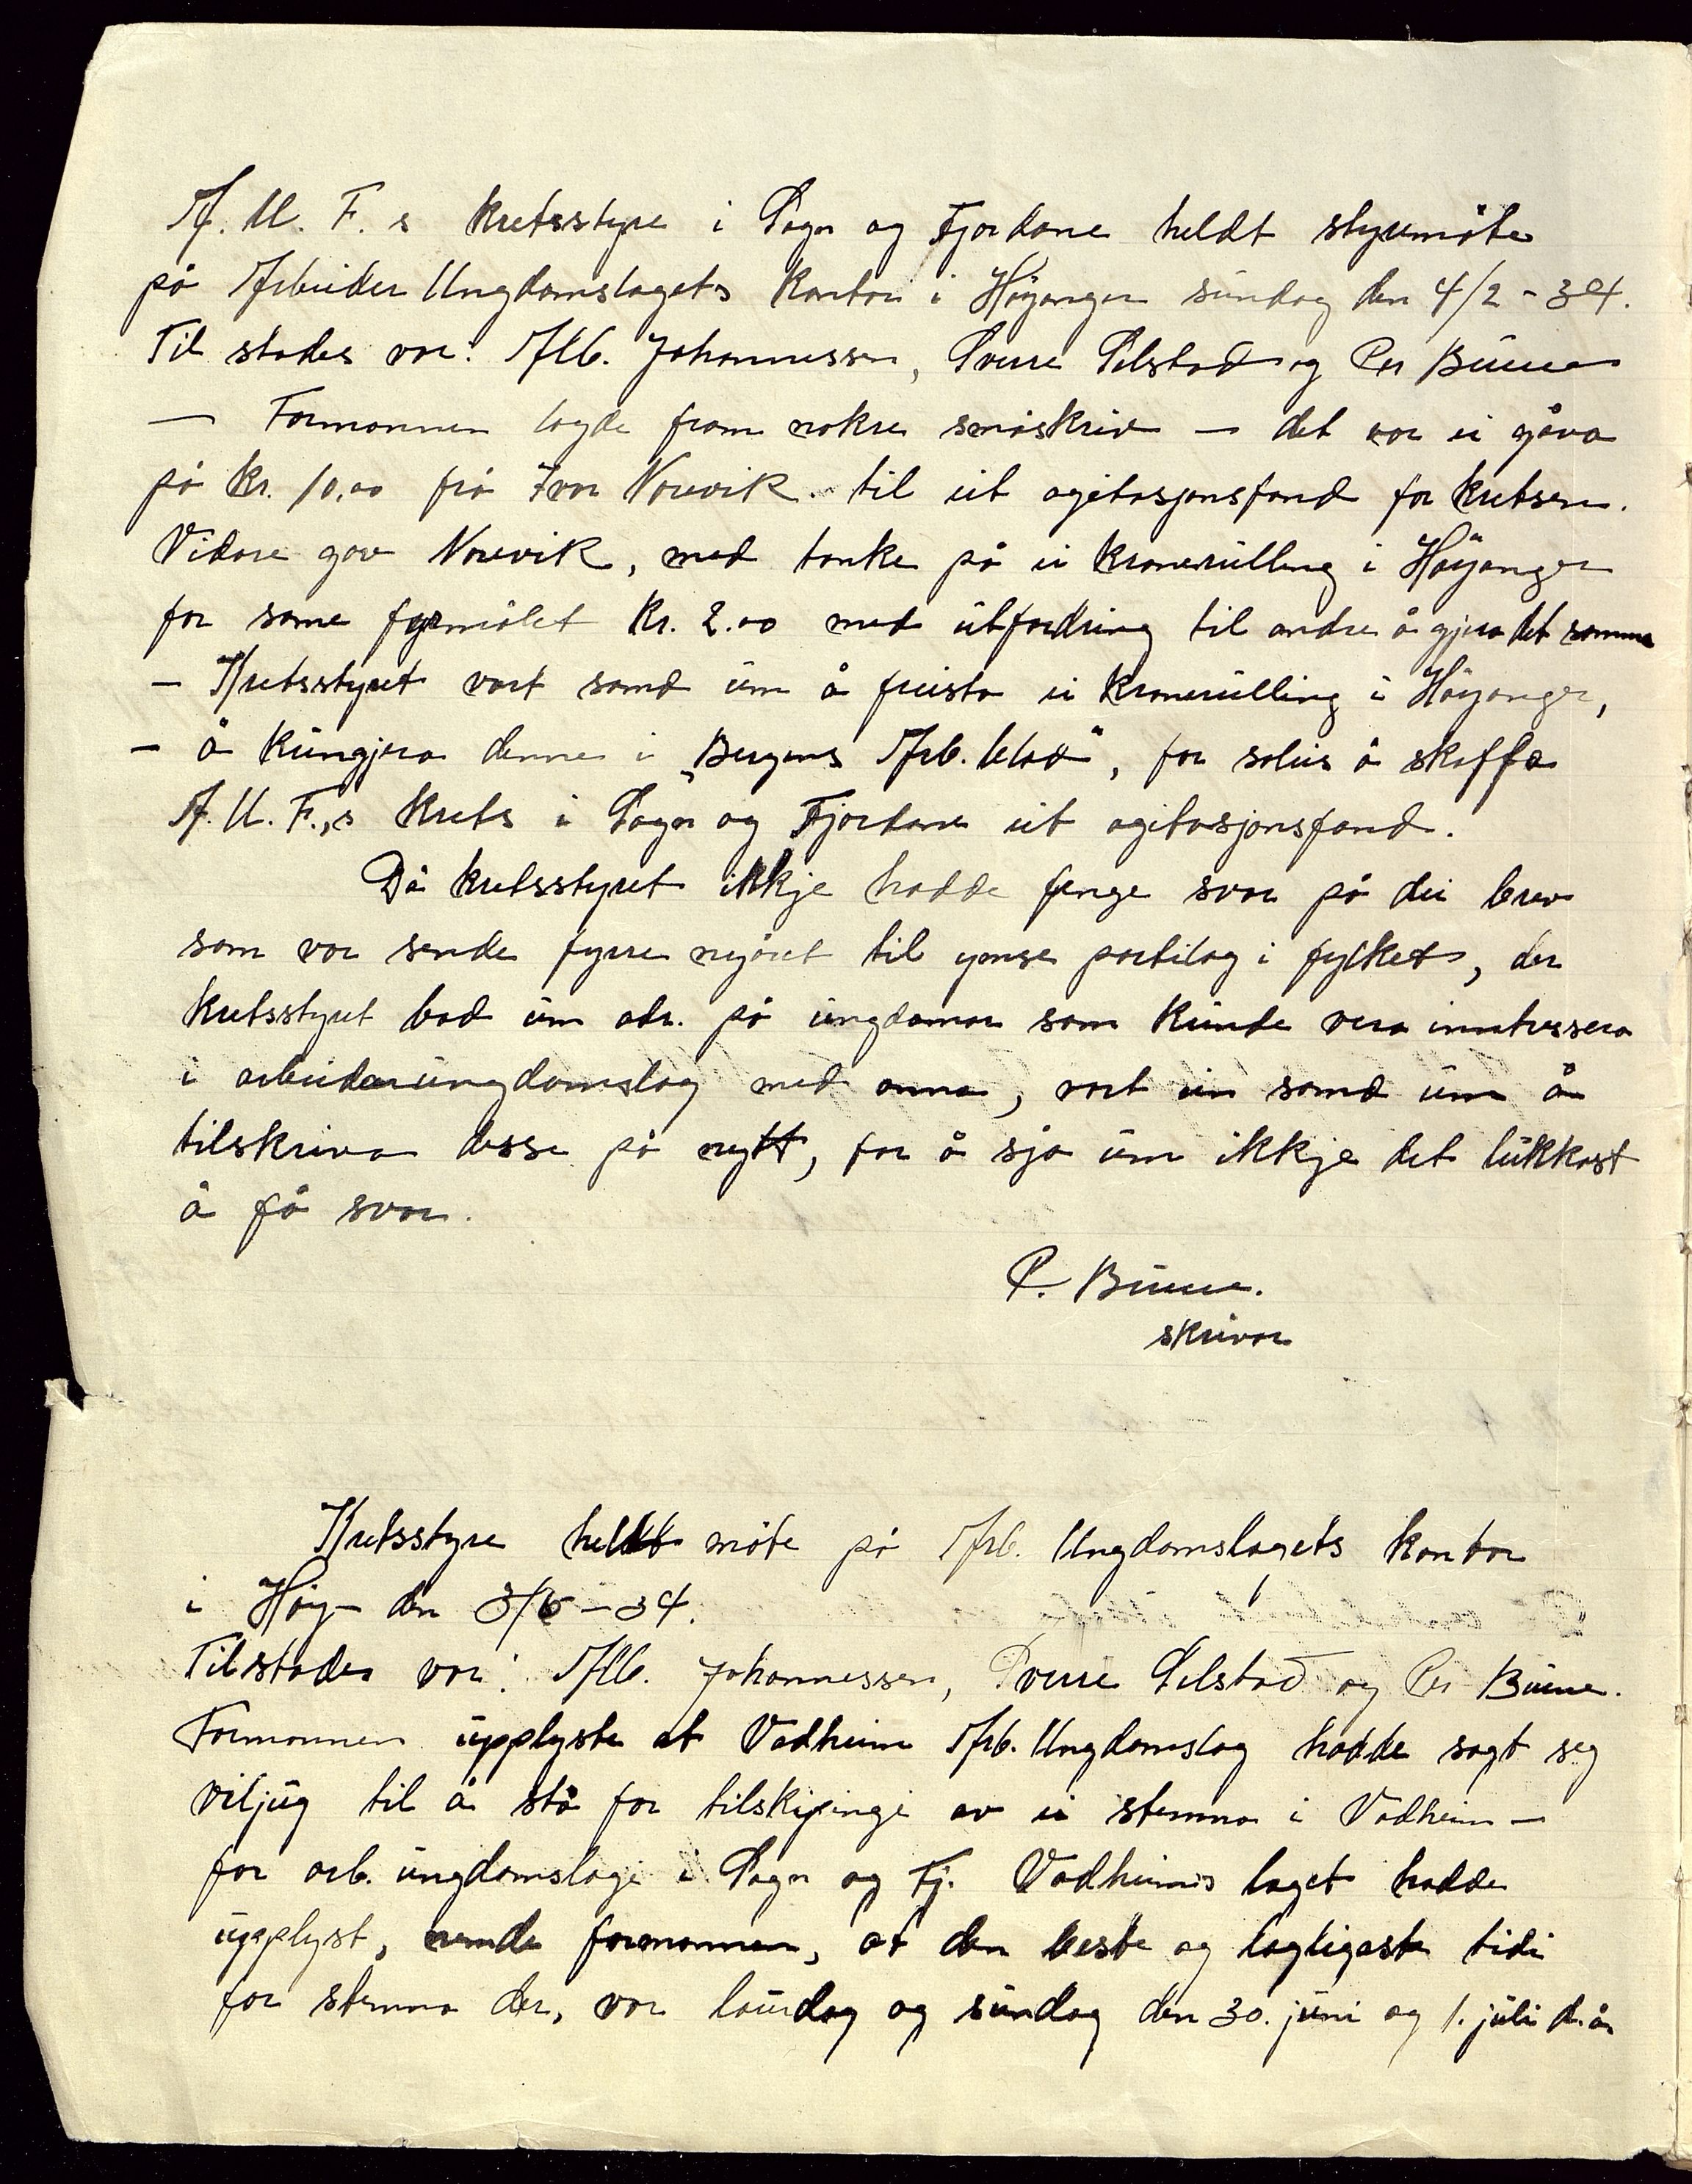 A. U. F. s Kretsstyre i Sogn og Fjordane heldt styremöte
på Arbeider Ungdomslagets Kontor i Höyanger sundag den 4/2 - 34.
Til stades var: Alb. Johannessen, Sverre Selstad og Per Buene
— Formannen lagde fram nokre småskriv — det var ei gåva
på Kr. 10,00 frå Ivar Norevik til eit agitasjonsfond for kretsen.
Vidare gav Norevik, med tanke på ei kronerulling i Höyanger
for same fyremålet Kr. 2.00 med utfordring til andre å gjera det samme
— Kretsstyret vart samd um å freista ei kronerulling i Höyanger,
— å kungjera denne i „Bergens Arb. blad“, for soleis å skaffa
A. U. F.,s Krets i Sogn og Fjordane eit agitasjonsfond.
Då kretsstyret ikkje hadde fenge svar på dei brev
som var sende fyrre nyåret til ymse partilag i fylket, der
kretsstyret bad um adr. på ungdomar som kunde vera inntressera
i arbeiderungdomslag med anna, vart ein samd um å
tilskriva desse på nytt, for å sjå um ikkje det lukkast
å få svar.
P. Buene.
skrivar
Kretsstyre heldt möte på Arb. Ungdomslagets kontor
i Höy- den 3/6 - 34.
Tilstades var: Alb. Johannessen, Sverre Selstad og Per Buene.
Formannen upplyste at Vadheim Arb. Ungdomslag hadde sagt seg
viljug til å stå for tilskipingi av ei stemna i Vadheim —
for arb. ungdomslagi i Sogn og Fj. Vadheims laget hadde
upplyst, nemde formannen, at den beste og lagligaste tidi
for stemna der, var laurdag og sundag den 30. juni og 1. juli d. å.